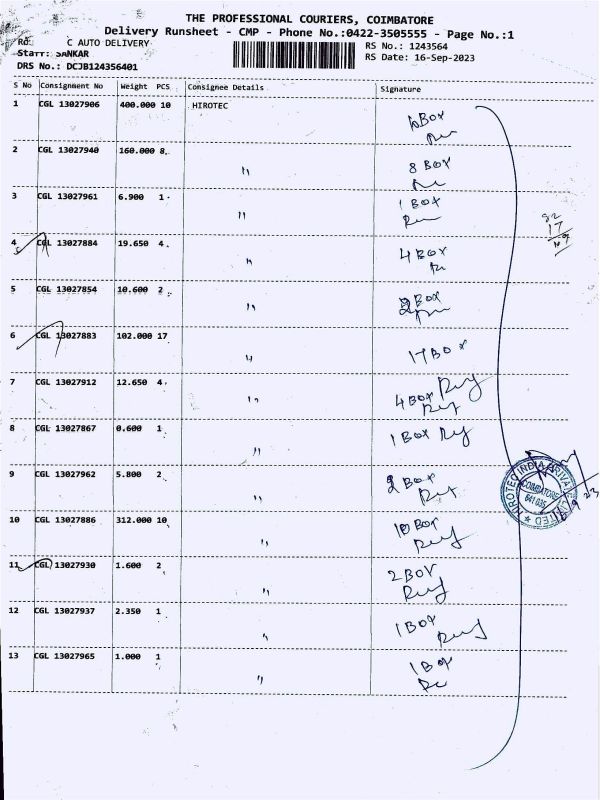 THE PROFESSIONAL COURIERS, COIMBATORE
Delivery Runsheet - CMP - Phone No.:0422-3505555 - Page No.:1
C AUTO DELIVERY
RS No.: 1243564
SANKAR
RS Date: 16-Sep-2023
DRS No.: DCJB124356401
S No Consignment No Weight PCS Consignee Details Signature
1 CGL 13027906 400.000 10 HIROTEC
10 BOX
2 CGL 13027940 160.000 8 "
8 BOX
3 CGL 13027961 6.900 1 "
1 BOX
82
17
4 CGL 13027884 19.650 4 "
4 BOX
5 CGL 13027854 10.600 2 "
2 BOX
6 CGL 13027883 102.000 17 "
17 BOX
7 CGL 13027912 12.650 4 "
4 BOX
8 CGL 13027867 0.600 1 "
1 BOX
9 CGL 13027962 5.800 2 "
2 BOX
HIROTEC INDIA PRIVATE LIMITED
COIMBATORE
641 035
10 CGL 13027886 312.000 10 "
10 BOX
11 CGL 13027930 1.600 2 "
2 BOX
12 CGL 13027937 2.350 1 "
1 BOX
13 CGL 13027965 1.000 1 "
1 BOX